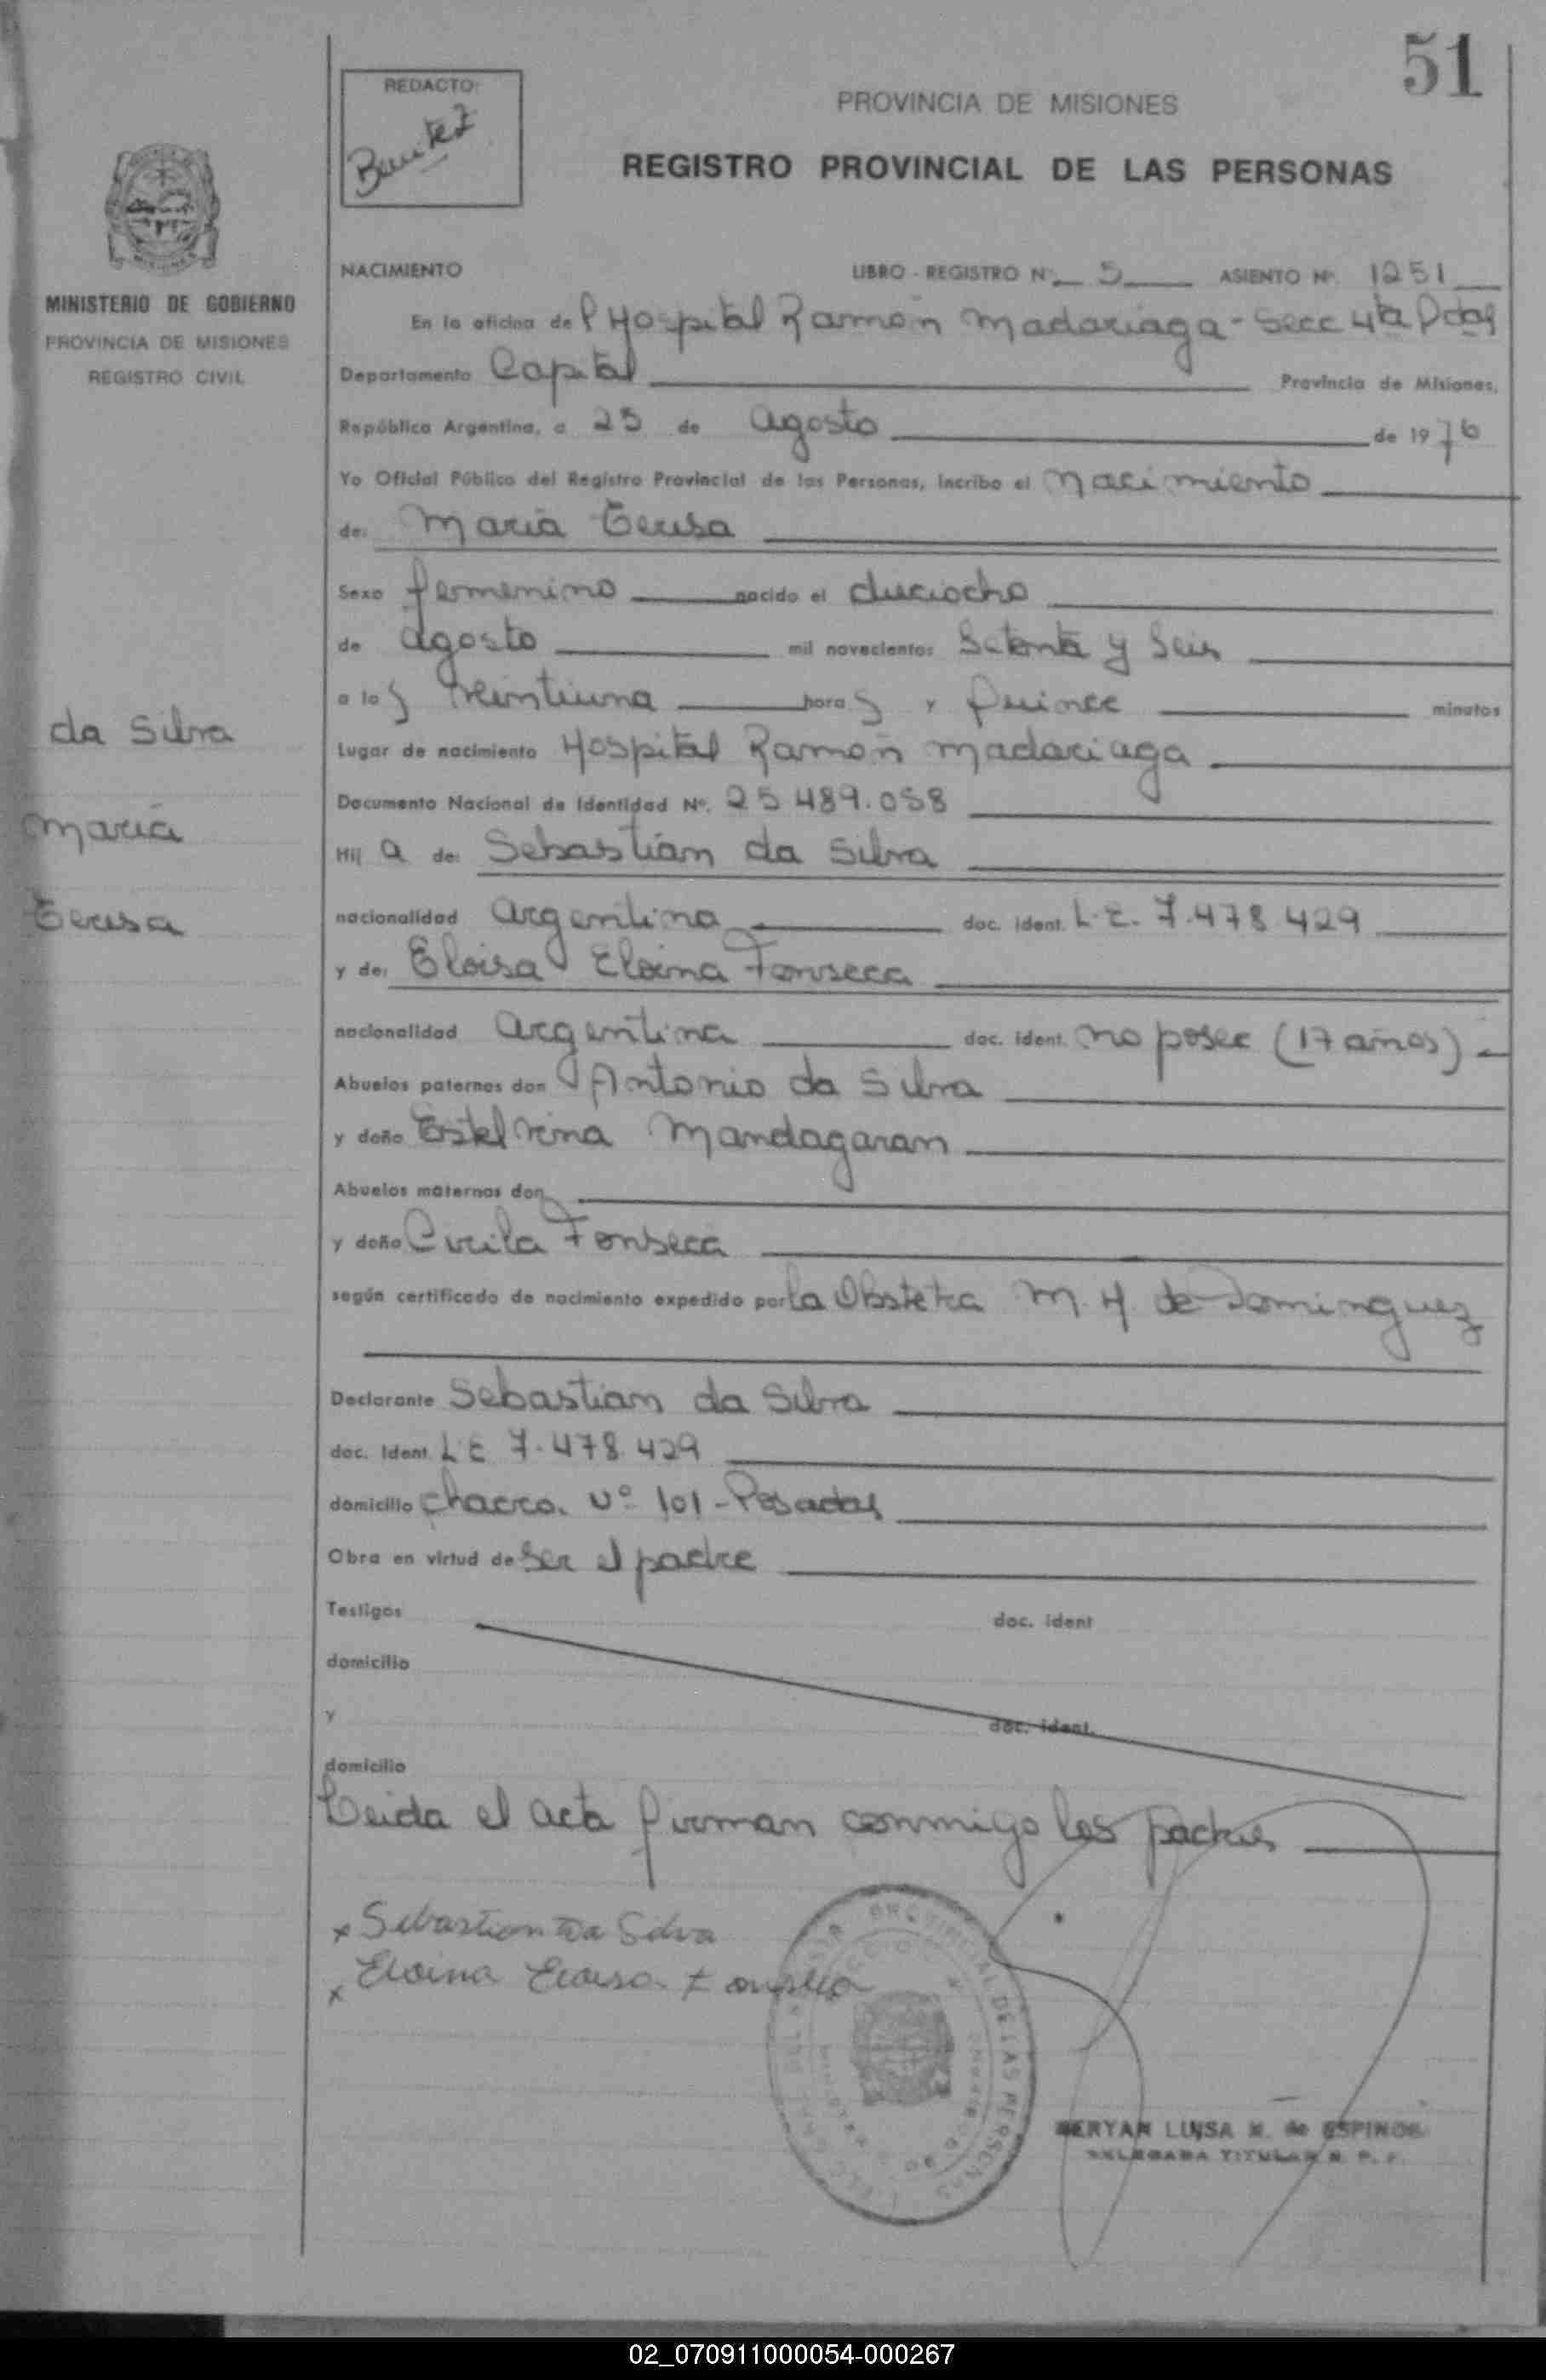 51
REDACTO:
Benitez
PROVINCIA DE MISIONES
REGISTRO PROVINCIAL DE LAS PERSONAS
MINISTERIO DE GOBIERNO
PROVINCIA DE MISIONES
REGISTRO CIVIL
NACIMIENTO LIBRO - REGISTRO Nº 5 ASIENTO Nº 1251
En la oficina del Hospital Ramón Madariaga - Secc 4ta Pdas
Departamento Capital Provincia de Misiones,
República Argentina, a 25 de Agosto de 1976
Yo Oficial Público del Registro Provincial de las Personas, incribo el Nacimiento
de: María Teresa
Sexo femenino nacido el dieciocho
de agosto mil novecientos Setenta y Seis
a las Veintiuna horas y Quince minutos
Lugar de nacimiento Hospital Ramón Madariaga
Documento Nacional de Identidad Nº. 25 489.058
Hij a de: Sebastián da Silva
nacionalidad Argentina doc. ident. L.E. 7.478.429
y de: Eloisa Eloina Fonseca
nacionalidad Argentina doc. ident. no posee (17 años)
Abuelos paternos don Antonio da Silva
y doña Estelvina Mandagaran
Abuelos maternos don
y doña Cirila Fonseca
según certificado de nacimiento expedido por la Obstetra M. H. de Dominguez
Declarante Sebastian da Silva
doc. ident. L E 7.478.429
domicilio chacra Nº 101 - Posadas
Obra en virtud de ser el padre
Testigos doc. ident
domicilio
y doc. ident.
domicilio
Leida el acta firman conmigo los padres
da Silva
María
Teresa
x Sebastian Da Silva
x Eloina Eloisa Fonseca
PROVINCIAL DE LAS PERSONAS
LUISA M. de ESPINOS
DELEGADA TITULAR R. P. P.
02_070911000054-000267